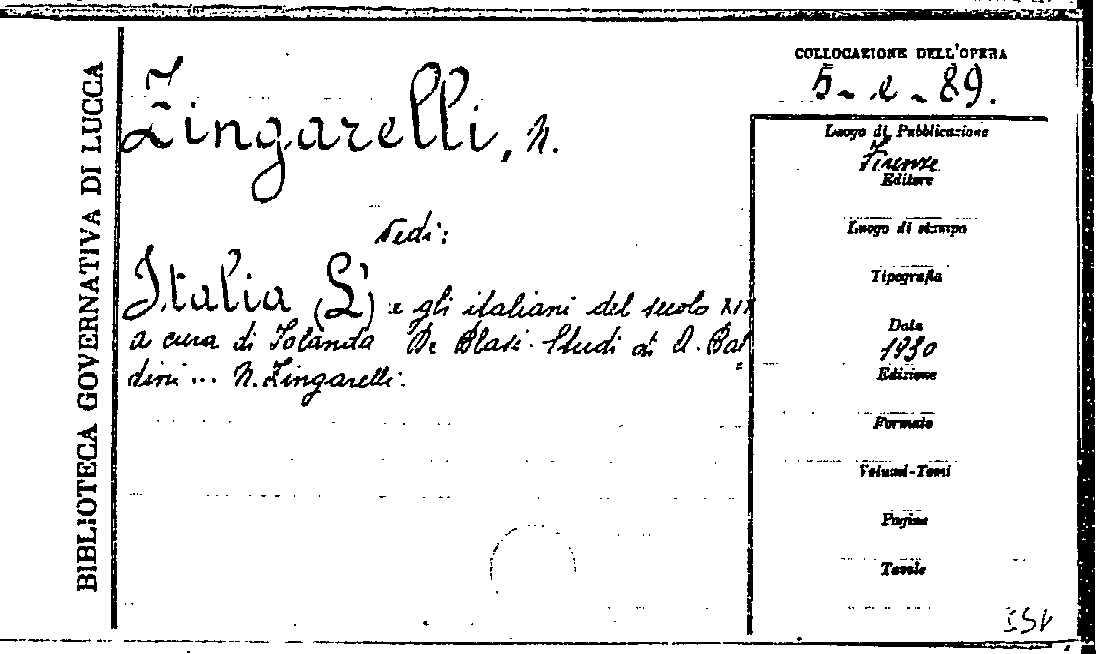 BIBLIOTECA GOVERNATIVA DI LUCCA
Zingarelli, N.
Vedi:
Italia (L') e gli italiani del secolo XIX
a cura di Iolanda De Blasi. Studi di A. Bal=
dini... N. Zingarelli.
COLLOCAZIONE DELL'OPERA
5-e-89.
Luogo di Pubblicazione
Firenze
Editore
Luogo di stampa
Tipografia
Data
1930
Edizione
Formato
Volumi-Tomi
Pagine
Tavole